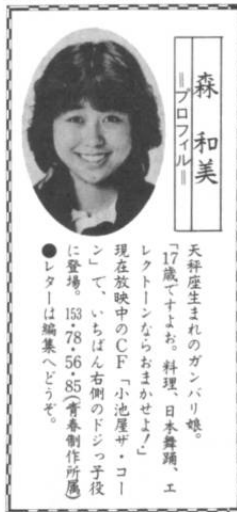 森和美
=プロフィル=
天秤座生まれのガンバリ娘。
「17歳ですよお。料理、日本舞踊、エ
レクトーンならおまかせよ！」
現在放映中のCF「小池屋ザ・コー
ン」で、いちばん右側のドジっ子役
に登場。153・78・56・85(青春制作所属)
●レターは編集へどうぞ。